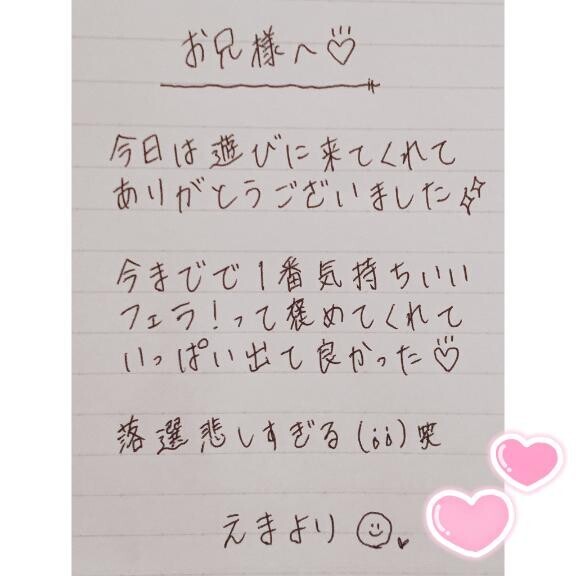 お兄様へ♡
今日は遊びに来てくれて
ありがとうございました
今までで1番気持ちいい
フェラ!って褒めてくれて
いっぱい出て良かった♡
落選悲しすぎる(;;)笑
えまより